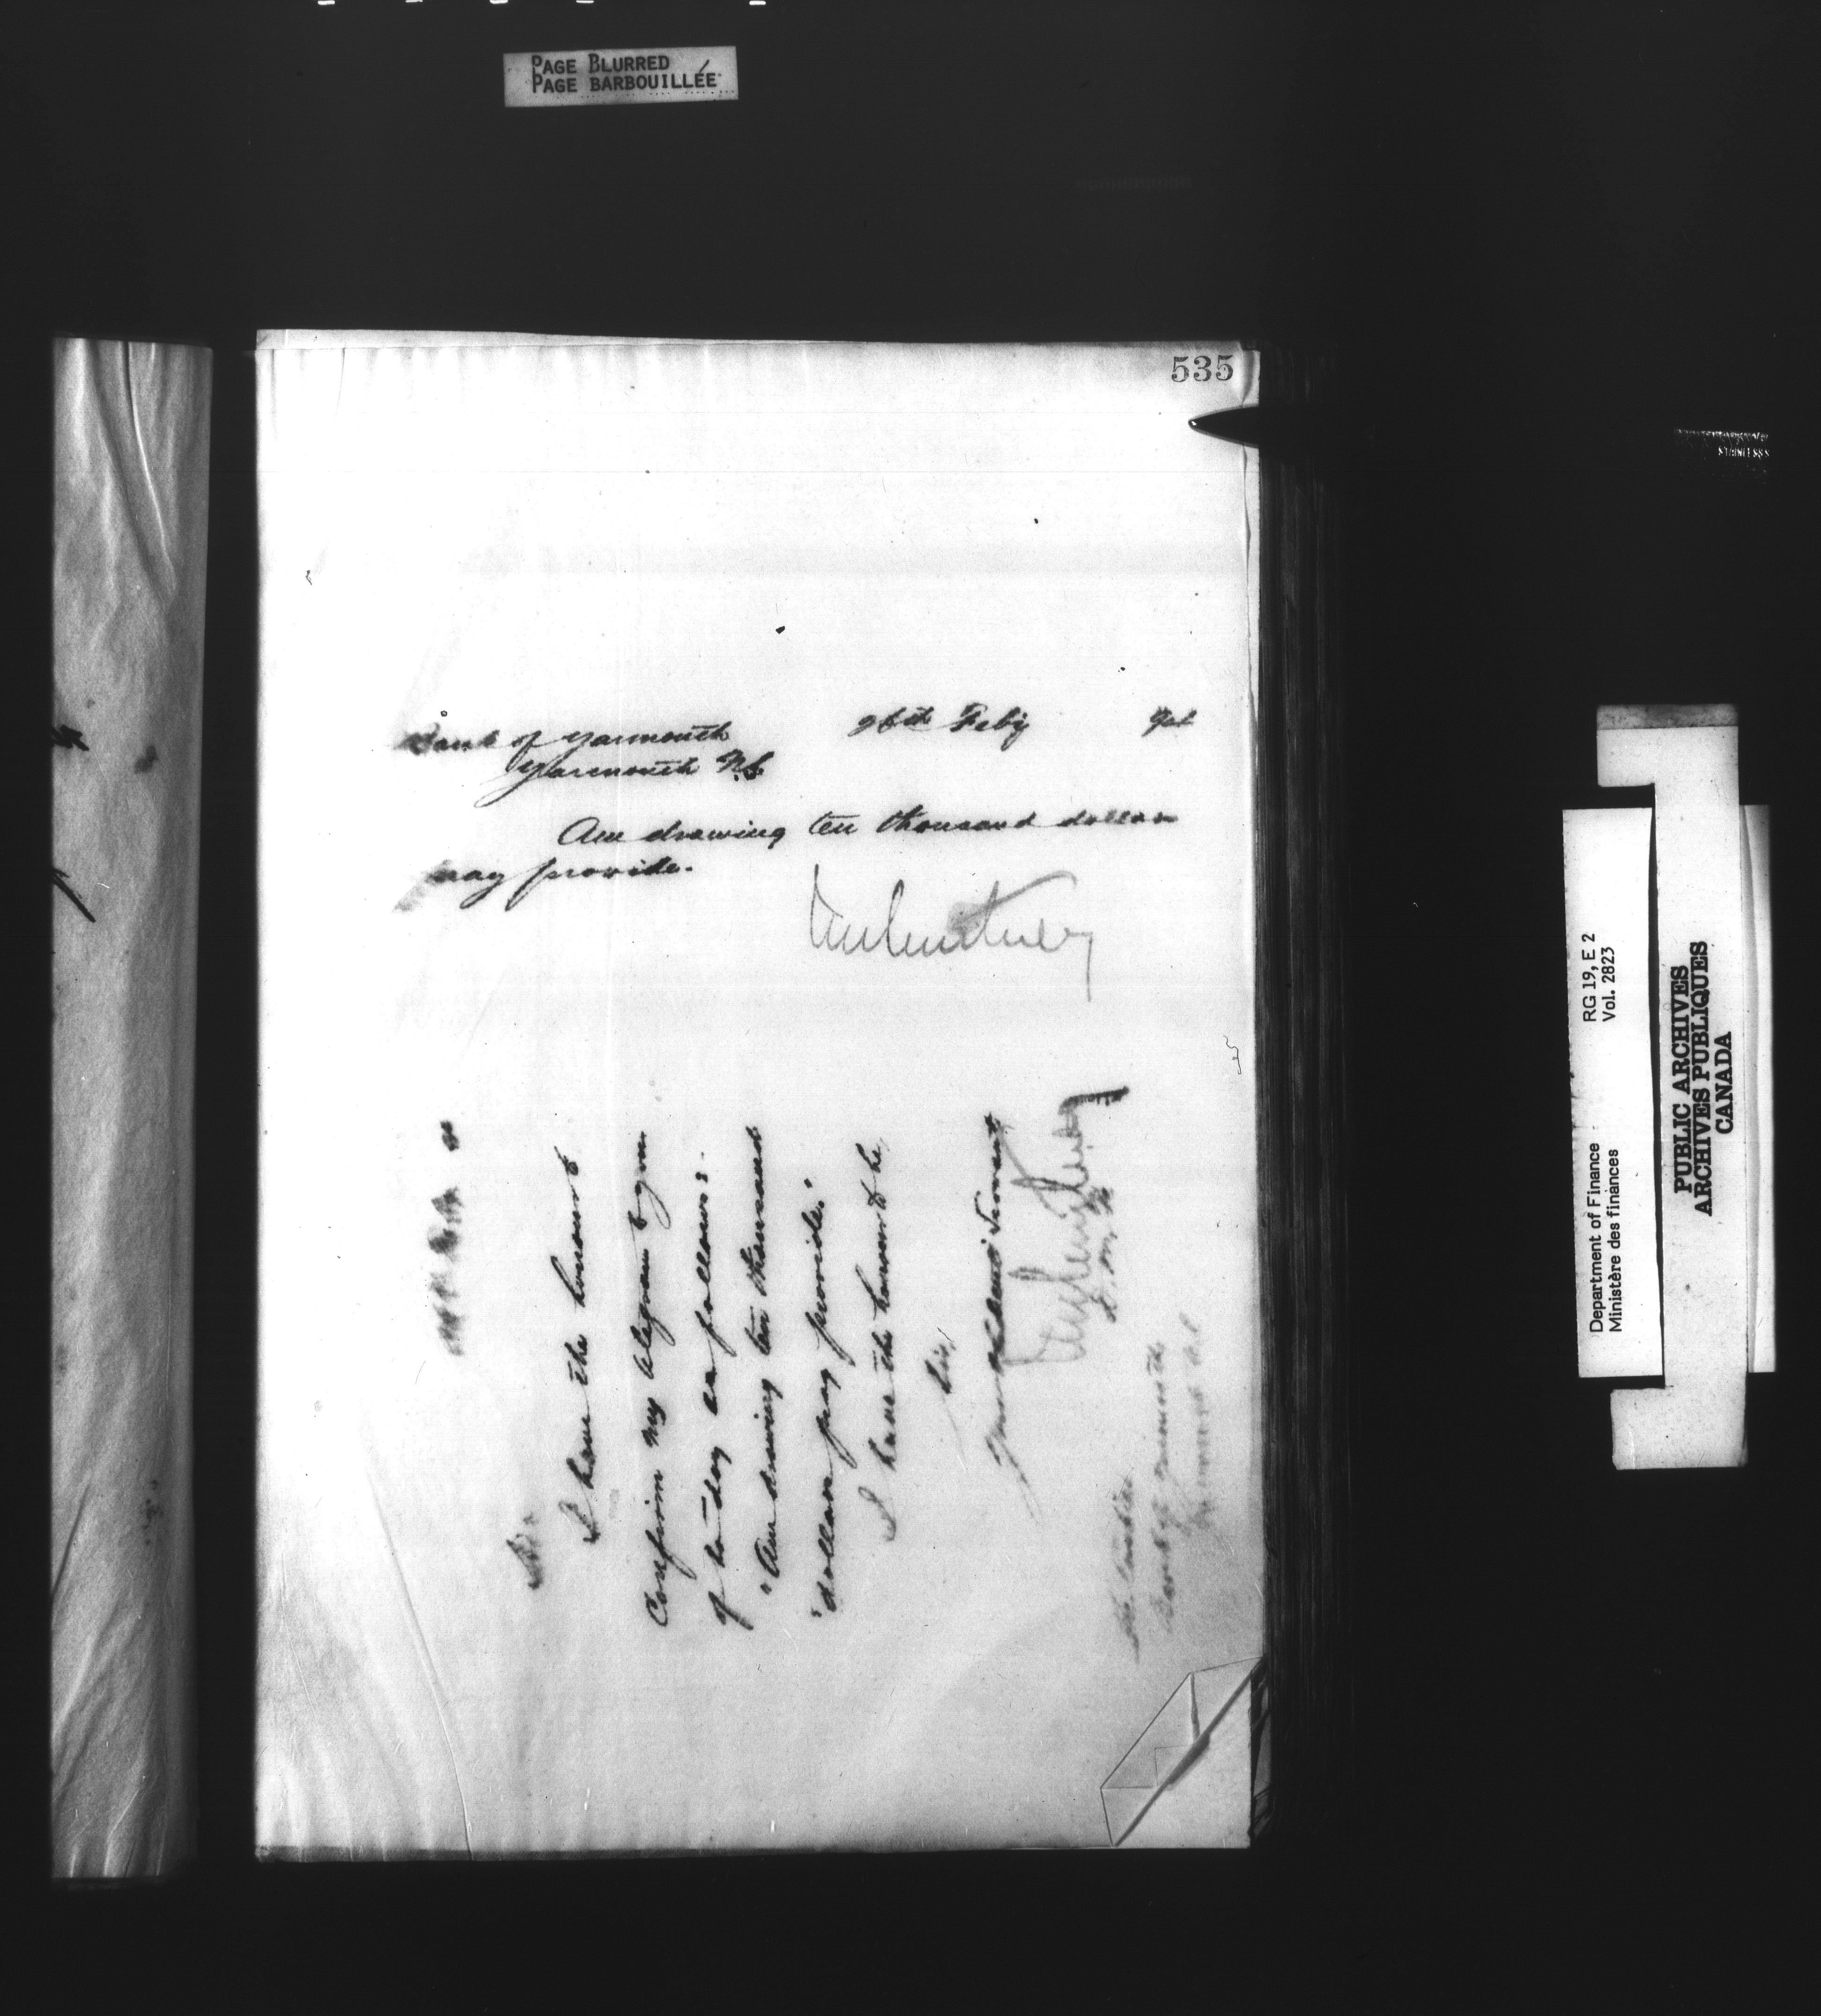 PAGE BLURRED
PAGE BARBOUILLÉE
535
Bank of Yarmouth 26th Feby
Yarmouth N.S.
Am drawing ten thousand dollars
pray provide.
JM Courtney
Sir
I have the honour to
Confirm my telegram to you
of to-day as follows:
"Am drawing ten thousand
"dollars pray provide."
I have the honour to be,
Sir,
Your obedient Servant
JM Courtney
D.M.F.
The Cashier
Bank of Yarmouth
Yarmouth N.S.
Department of Finance RG 19, E 2
Ministère des finances Vol. 2823
PUBLIC ARCHIVES
ARCHIVES PUBLIQUES
CANADA
STAINLESS